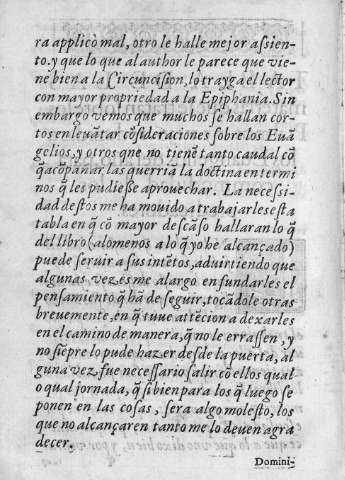 ra applicò mal, otro le halle mejor assien-
to. y que lo que al author le parece que vie-
ne bien a la Circuncision, lo trayga el lector
con mayor propriedad a la Epiphania. Sin
embargo vemos que muchos se hallan cor-
tos en leuãtar cõsideraciones sobre los Euã
gelios, y otros que no tienẽ tanto caudal cõ
q̃ acõpañar las querriã la doctina en termi
nos q̃ les pudiesse aprouechar. La necessi-
dad destos me ha mouido a trabajarles esta
tabla en q̃ cõ mayor descãso hallaran lo q̃
del libro (alomenos a lo q̃ yo he alcançado)
puede seruir a sus intẽtos, aduirtiendo que
algunas vezes me alargo en fundarles el
pensamiento q̃ hã de seguir, tocãdole otras
breuemente, en q̃ tuue attẽcion a dexarles
en el camino de manera, q̃ no le errassen, y
no siẽpre lo pude hazer desde la puerta, al
guna vez, fue necessario salir cõ ellos qual
o qual jornada, q̃ si bien para los q̃ luego se
ponen en las cosas, sera algo molesto, los
que no alcançaren tanto me lo deuen agra
decer.
Domini-